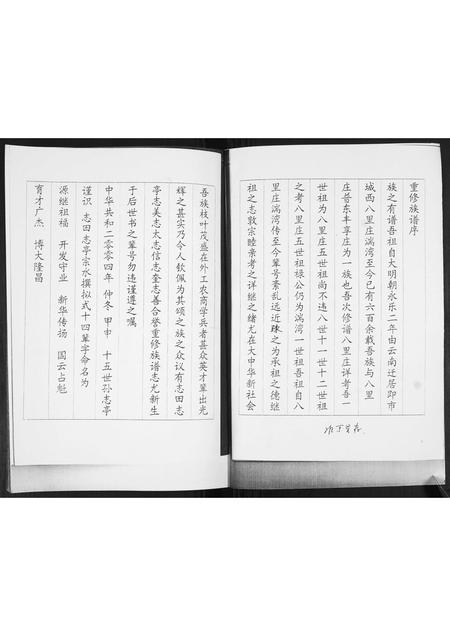 重修族谱序
族之有谱吾祖自大明朝永乐二年由云南迁居即市
城西八里庄湍湾至今已有六百余载吾族与八里
庄昔东丰享庄为一族也吾次修谱八里庄详考吾一
世祖为八里庄五世祖尚不违八世十一世十二世祖
之考八里庄五世祖禄公仍为湍湾一世祖吾祖自八
里庄湍湾传至今辈号紊乱远近疎之为承祖之德继
祖之志敦宗睦亲考之详继之绪尤在大中华新社会
吾族枝叶茂盛在外工农商学兵者甚众英才辈出光
辉之甚实乃令人钦佩为其颂之族之众议有志田志
亭志美志太志信志奎志善合誉重修族谱志尤新生
于后世书之辈号勿违谨遵之嘱
中华共和二零零四年 仲冬 甲申 十五世孙志亭
谨识 志田志亭宗水撰拟式十四辈字命名为
源继祖福 开发守业 新华传扬 国云占魁
育才广杰 博大隆昌